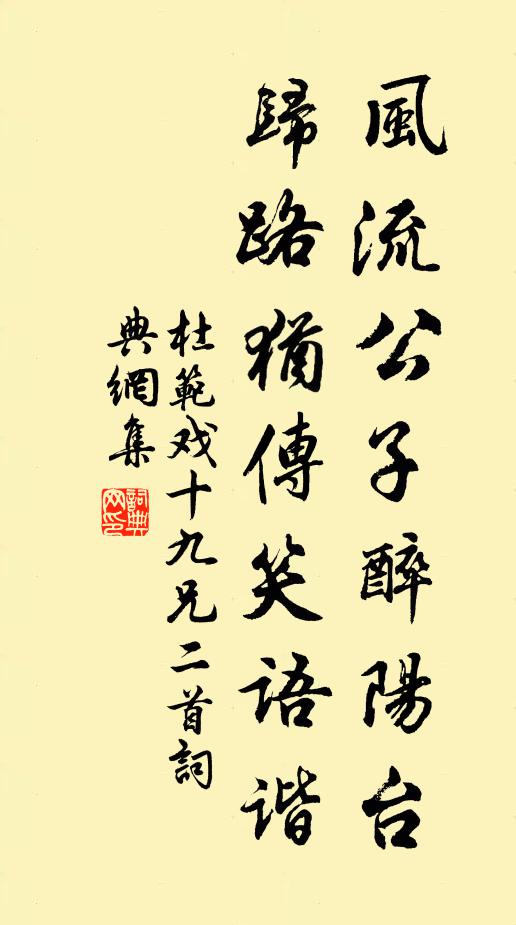 風流公子醉陽台
歸路猶傳笑语谐
杜範戏十九兄二首詞
典網集
詞典
网印